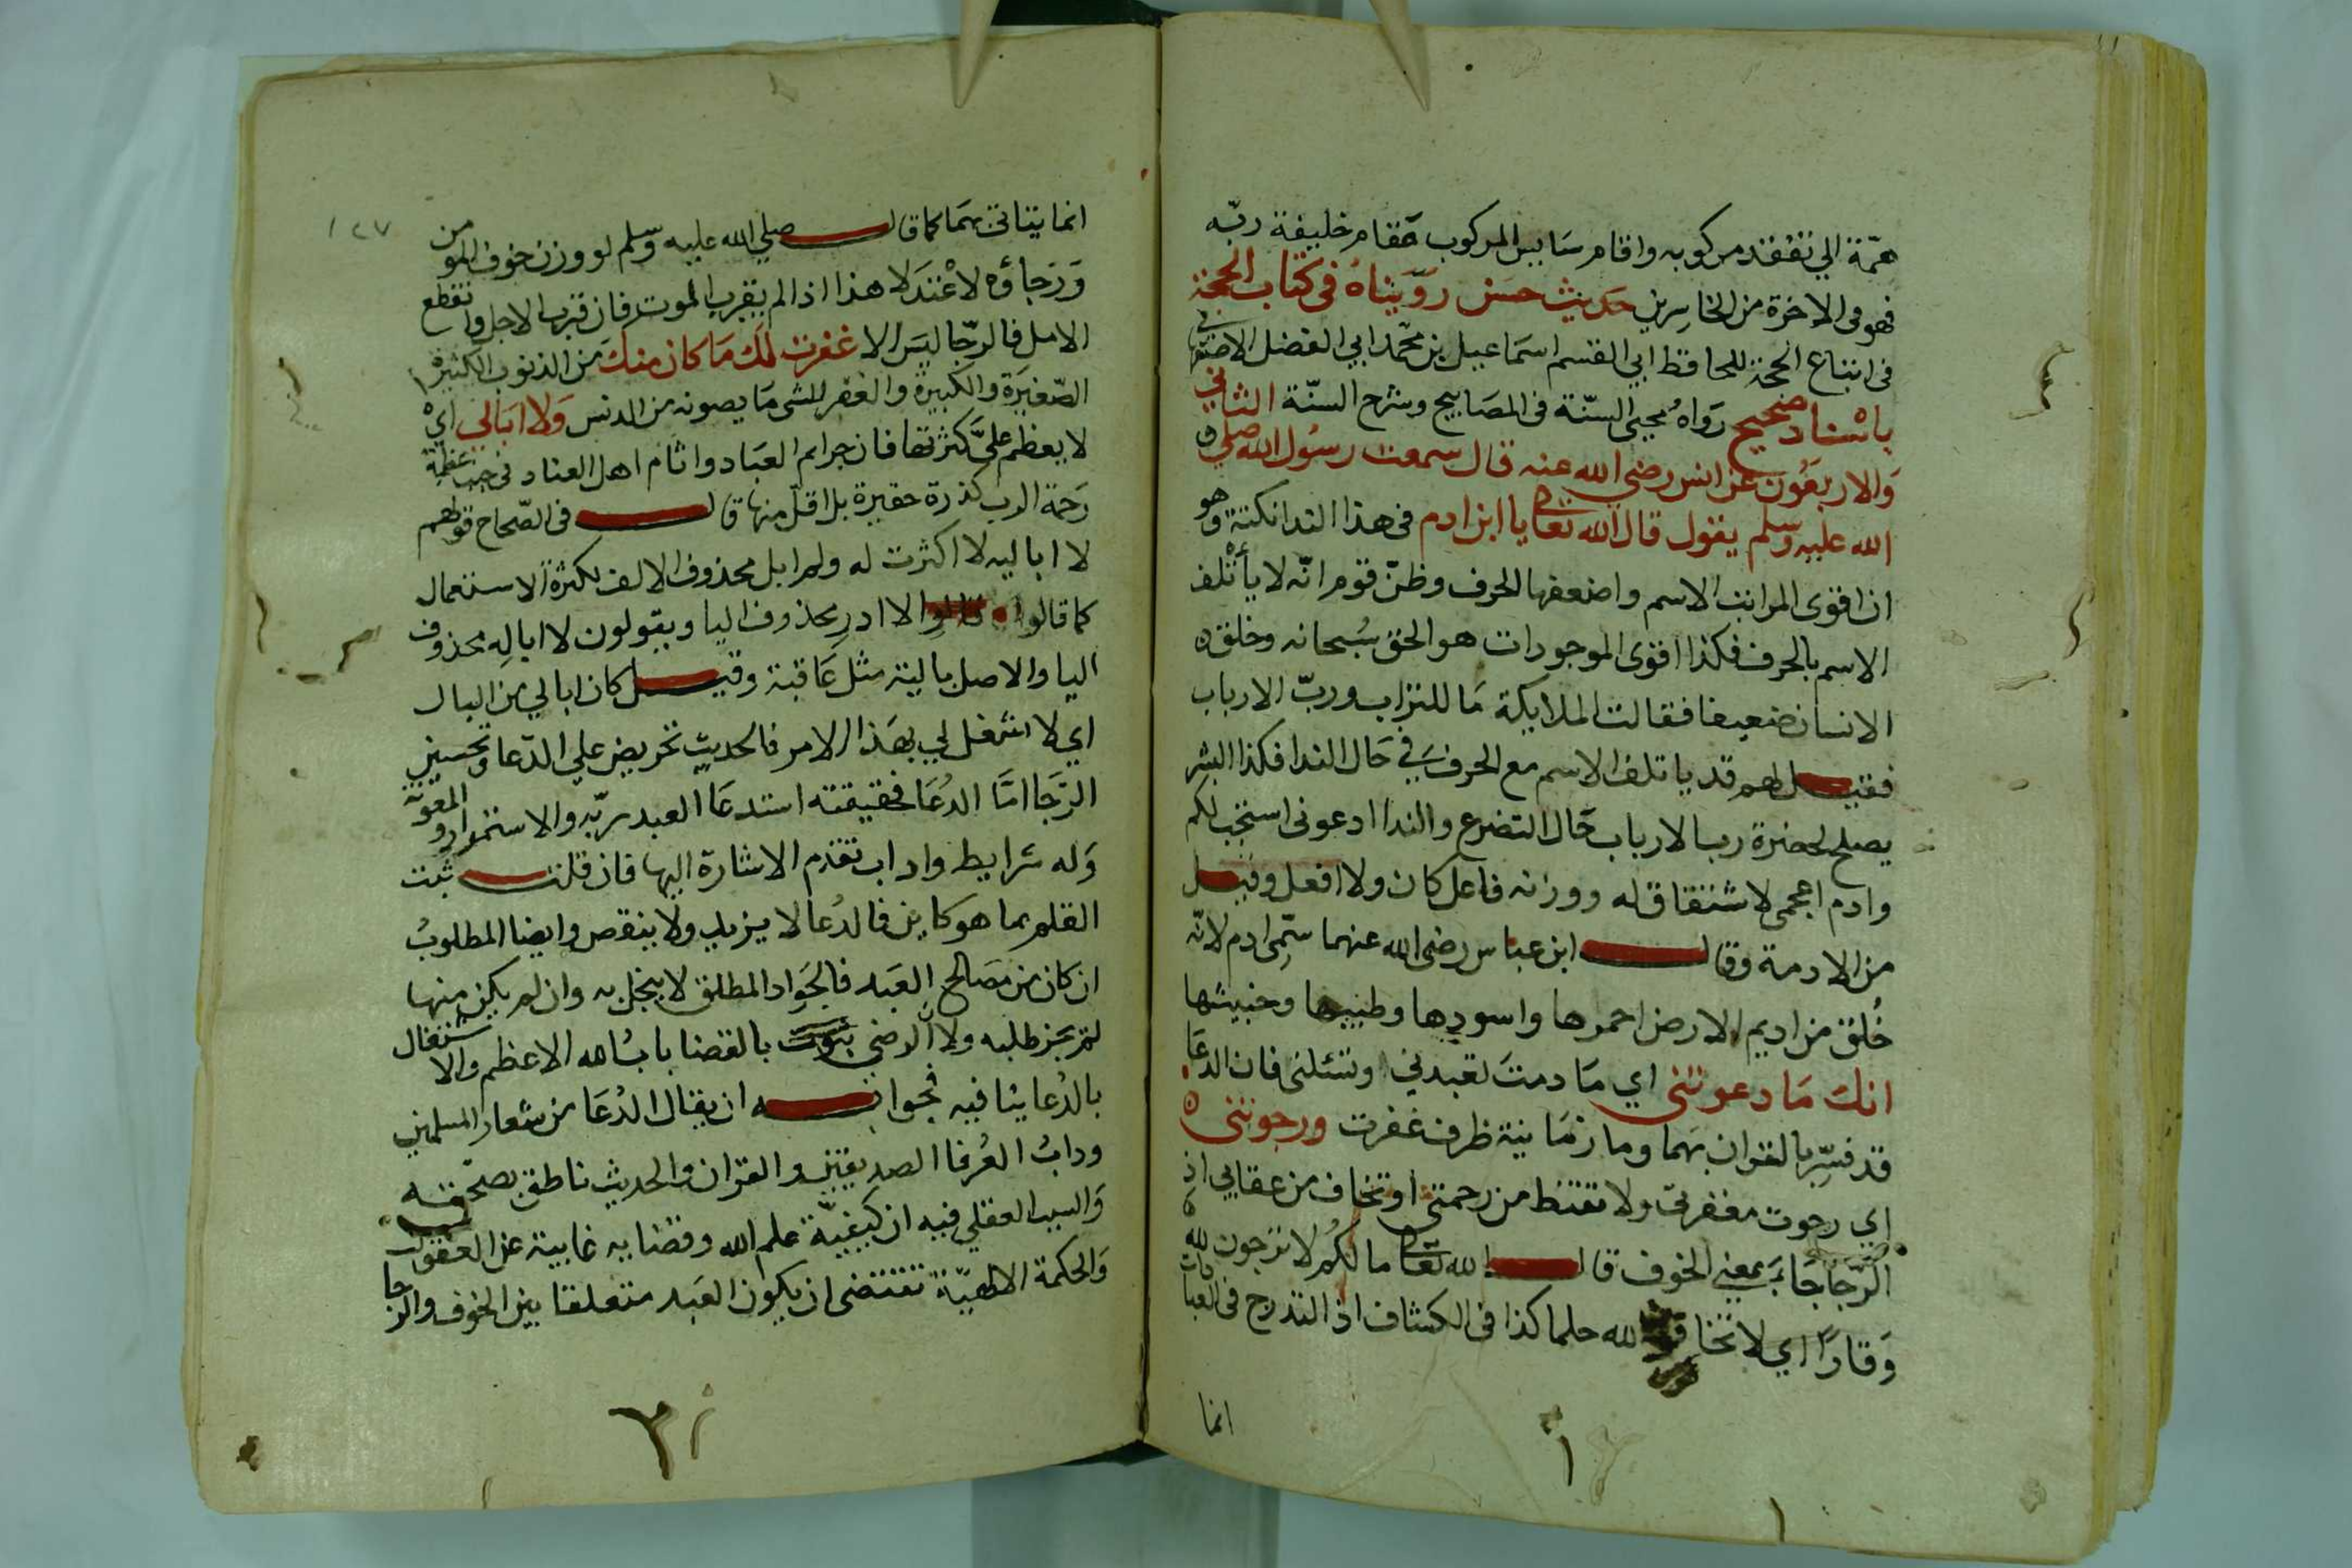 همّة الي تفقد مركوبه واقام سايس المركوب مقام خليفة ربّه
فهو في الاخرة من الخاسرين حديث حسن رويناه في كتاب الحجة
في اتباع الحجة للحافظ ابي القسم اسماعيل بن محمد ابي الفضل الاصفهاني
باسناد صحيح رواه محيي السنّة في المصابيح وشرح السنّة الثاني
والاربعون عن انس رضي الله عنه قال سمعت رسول الله صلي
الله عليه وسلم يقول قال الله تعالي يا ابن ادم في هذا الندا نكتة وهو
ان اقوي المراتب الاسم واضعفها الحرف وظنّ قوم انّه لا يأتلف
الاسم بالحرف فكذا اقوي الموجودات هو الحق سبحانه وخلق
الانسان ضعيفا فقالت الملايكة ما للتراب وربّ الارباب
فقيل لهم قد ياتلف الاسم مع الحرف في حال الندا فكذا البشر
يصلح لحضرة رب الارباب حال التضرع والندا ادعوني استجب لكم
وادم اعجمي لا شتقاق له ووزنه فاعل كان ولا افعل وقيل
من الادمة وقال ابن عباس رضي الله عنهما سمّي ادم لانّه
خُلق من اديم الارض احمرها واسودها وطيبها وخبيثها
انك ما دعوتني اي ما دمت تعبدني وتسئلني فان الدعا
قد فسّر بالقران بهما وما زمانية ظرف غفرت ورجوتني
اي رجوت مغفرتي ولا تقنط من رحمتي او تخاف من عقابي اذ
الرّجا جاء بمعني الخوف قال الله تعالي ما لكم لا ترجون لله
وقارا اي لا تخافون لله حلما كذا في الكشاف اذ التدرج في العبادات
انما
١٢٧
انما يتاتي بهما كما قال صلي الله عليه وسلم لو وزن خوف المومن
ورجاؤه لاعتدلا هذا اذا لم يقرب الموت فان قرب الاجل وانقطع
الامل فالرجا ليس الا غفرت لك ما كان منك من الذنوب الكثيرة
الصّغيرة والكبيرة والغفر للشي ما يصونه من الدنس ولا ابالي اي
لا يعظم عليّ كثرتها فان جرايم العباد واثام اهل العناد في جنب عظمة
رحمة الرب كذرة حقيرة بل اقلّ منها قال في الصّحاح قولهم
لا اباليه لا اكثرت له ولم ابل محذوف الالف لكثرة الاستعمال
كما قالوا الا ادرِ محذوف اليا ويقولون لا ابالِه محذوف
اليا والاصل بالية مثل عاقبة وقيل كان ابالي من البال
اي لا اشغل لبي بهذا الامر فالحديث تحريض علي الدّعا وتحسين
الرّجا امّا الدُعا فحقيقته استدعا العبد ربّه والاستمداد والمعونة
وله شرايط واداب تقدم الاشارة اليها فان قلت ثبت
القلم بما هو كاين فالدُعا لا يزيد ولا ينقص وايضا المطلوبُ
ان كان من مصالح العبد فالجواد المطلق لا يبخل به وان لم يكن منها
لم يجز طلبه ولا ان الرضي بالقضا بابُ الله الاعظم والاشتغال
بالدُعا ينافيه فجوابه ان يقال الدُعا من شعار المسلمين
ودابُ العُرفا الصديقين والقران والحديث ناطق بصحّته
والسبب العقلي فيه ان كيفيّة علم الله وقضايه غايبة عن العقول
والحكمة الالهيّة تقتضي ان يكون العبد متعلقا بين الخوف والرجا